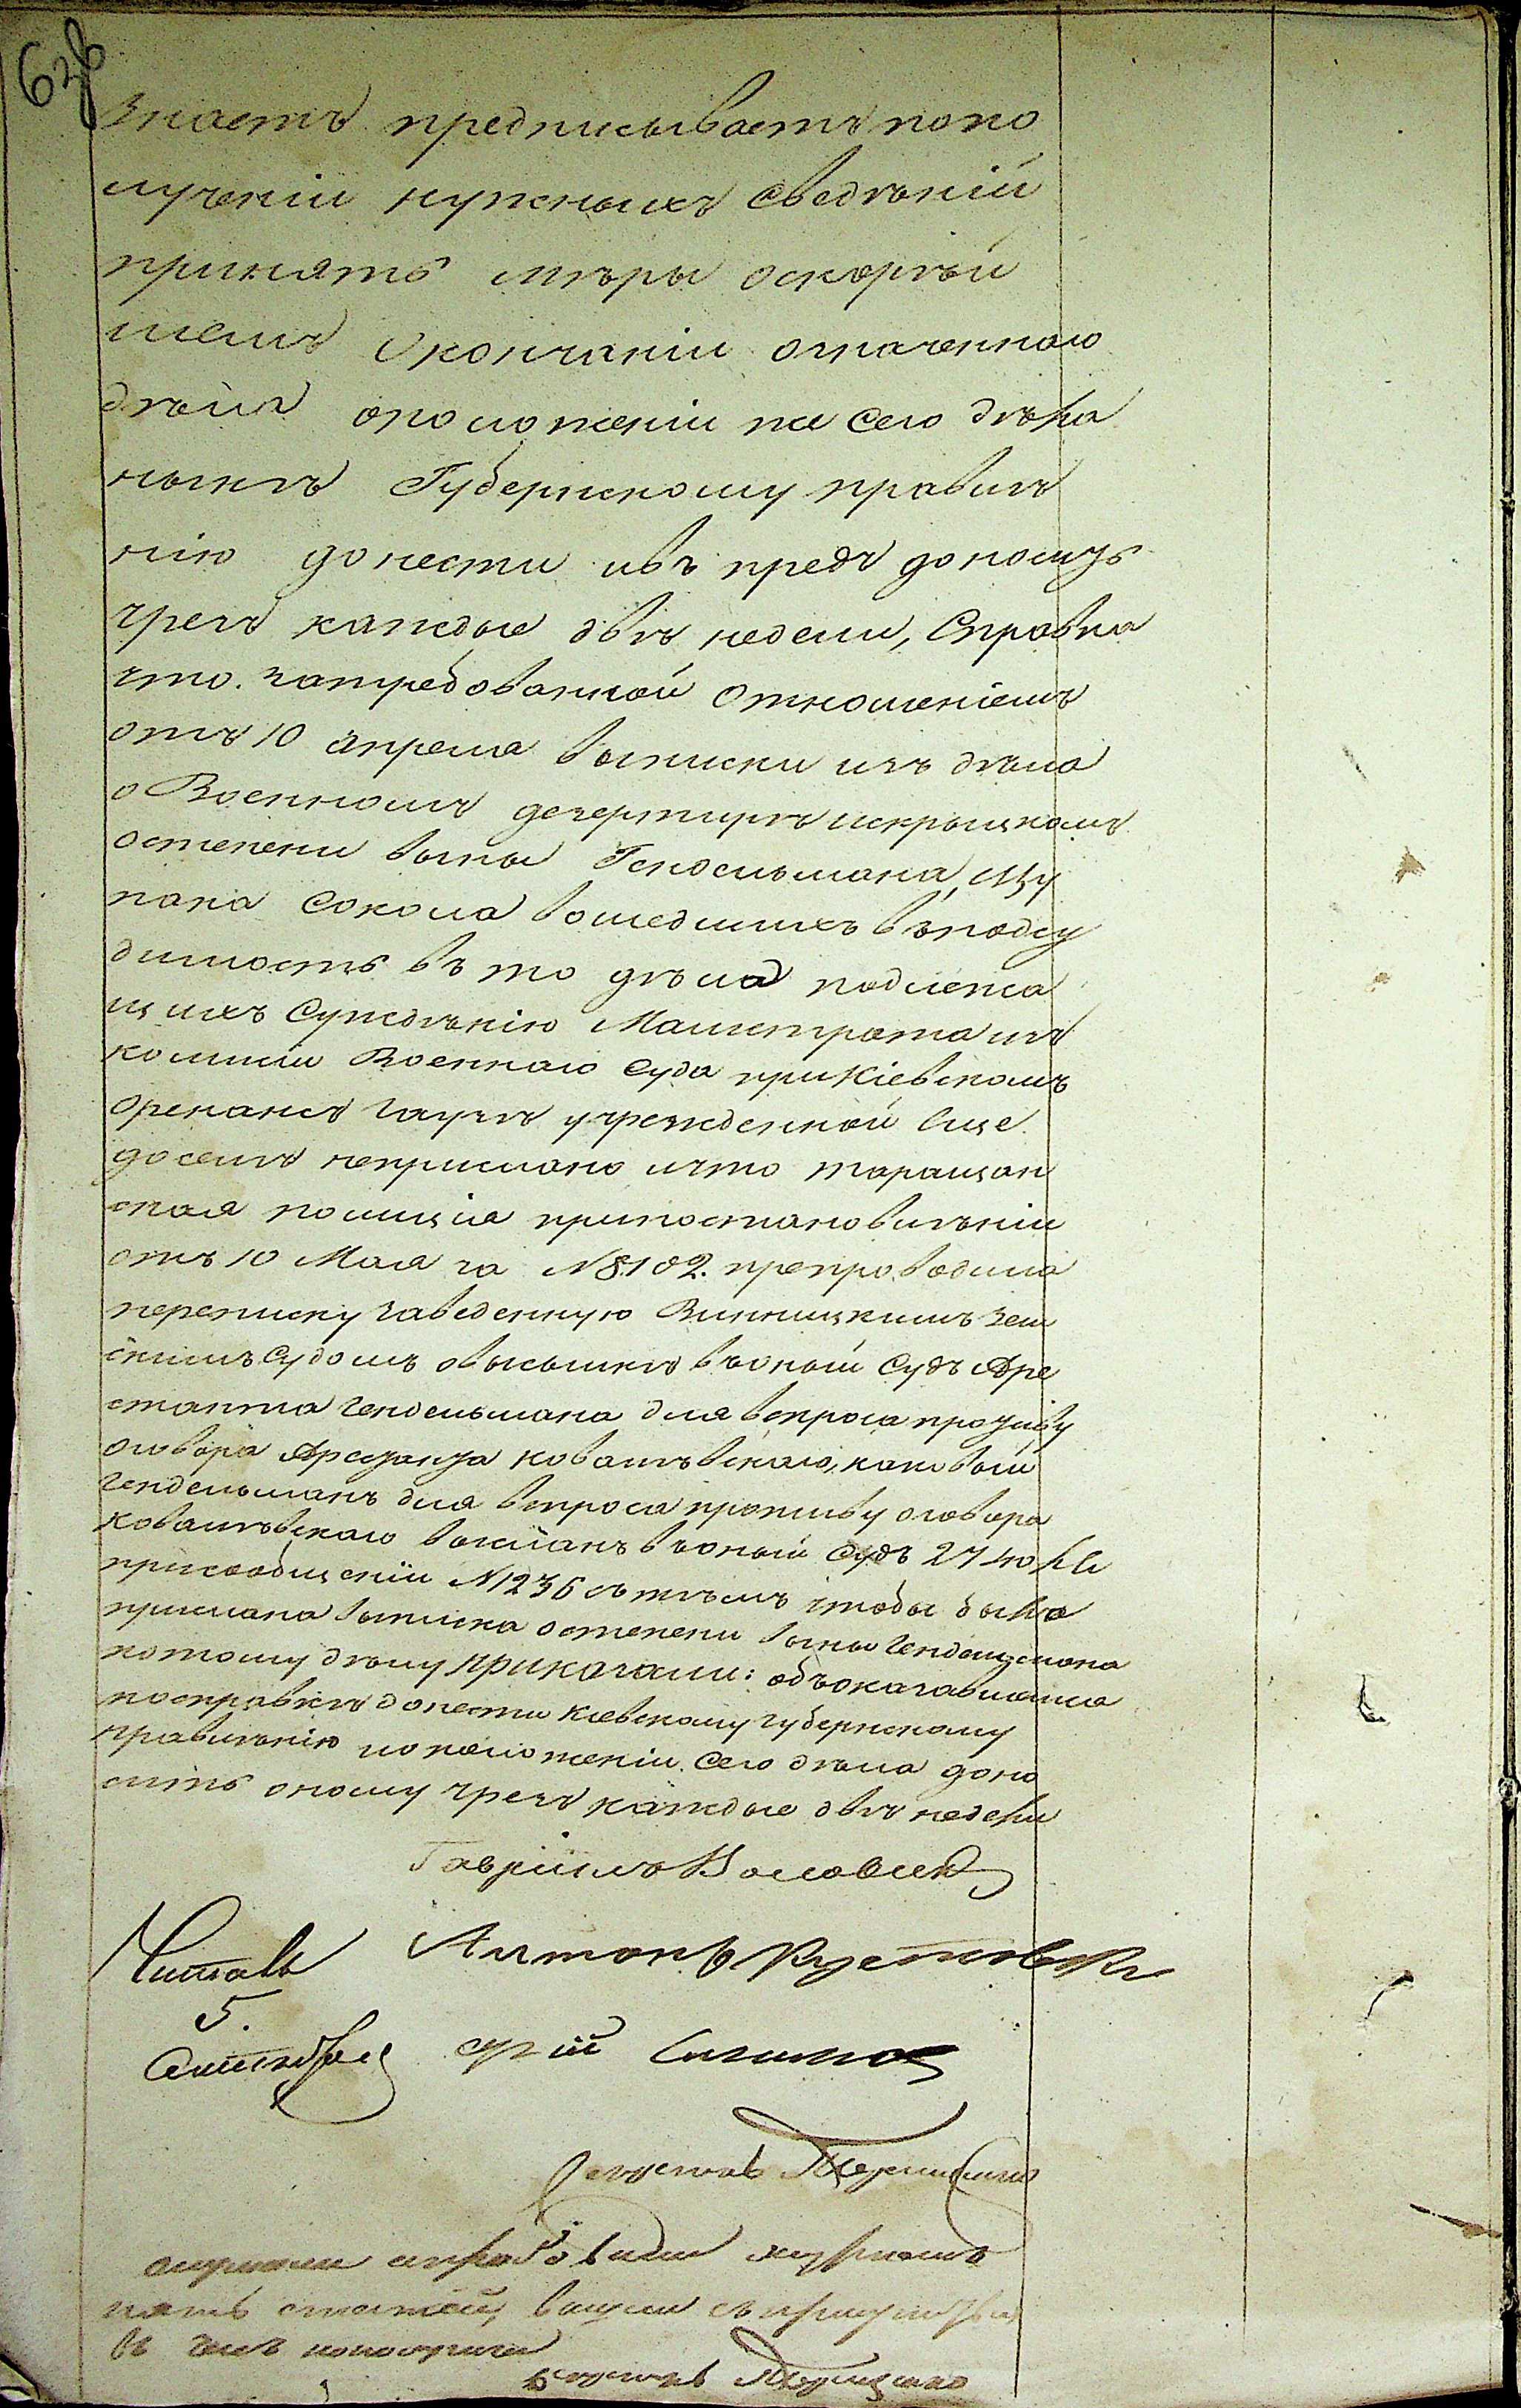 626
знаетъ предписываетъ попо
лученіи нужныхъ сведѣній
принять мѣры оскорѣй
шемъ окончаніи означеннаго
дѣла оположеніи же сего дѣла
нынѣ Губернскому правлѣ
нію донести ивъ предъ доносить
чрезъ каждые двѣ недели, Справка
что. затребованной отношеніемъ
отъ 10 апреля выписки изъ дѣла
о Военномъ дезертирѣ искрыцкомъ
остепени вины Гендельмана, Цу
пана Сокола вошедшихъ въподсу
димость въ то дѣла подлежа
щихъ Сужденію Магистрата изъ
комисіи Военнаго Суда приКіевскомъ
орденансъ гаузѣ учрежденной еще
доселѣ неприслано ичто таращан
ская полиція припостановлѣніи
отъ 10 Мая за №8102. препроводила
переписку заведенную Винницкимъ зем
скимъ Судомъ овысылкѣ въоный Судъ Аре
станта Гендельмана для вопроса противу
оговора Арестанта ковалѣвскаго, каковый
Гендельманъ для вопроса противу оговора
ковалѣвскаго высланъ въоный Судъ 27 юля
присообщеніи №1236 сътѣмъ чтобы была
прислана выписка остепени вины Гендельмана
потому дѣлу приказали: объоказавшемся
посправкѣ донести Кіевскому губернскому
правлѣнію иположеніи Сего дѣла доно
сить оному чрезъ каждые двѣ недели
Гавріилъ
Читалъ Антонъ
5.
Сентября

пять статей,
въ